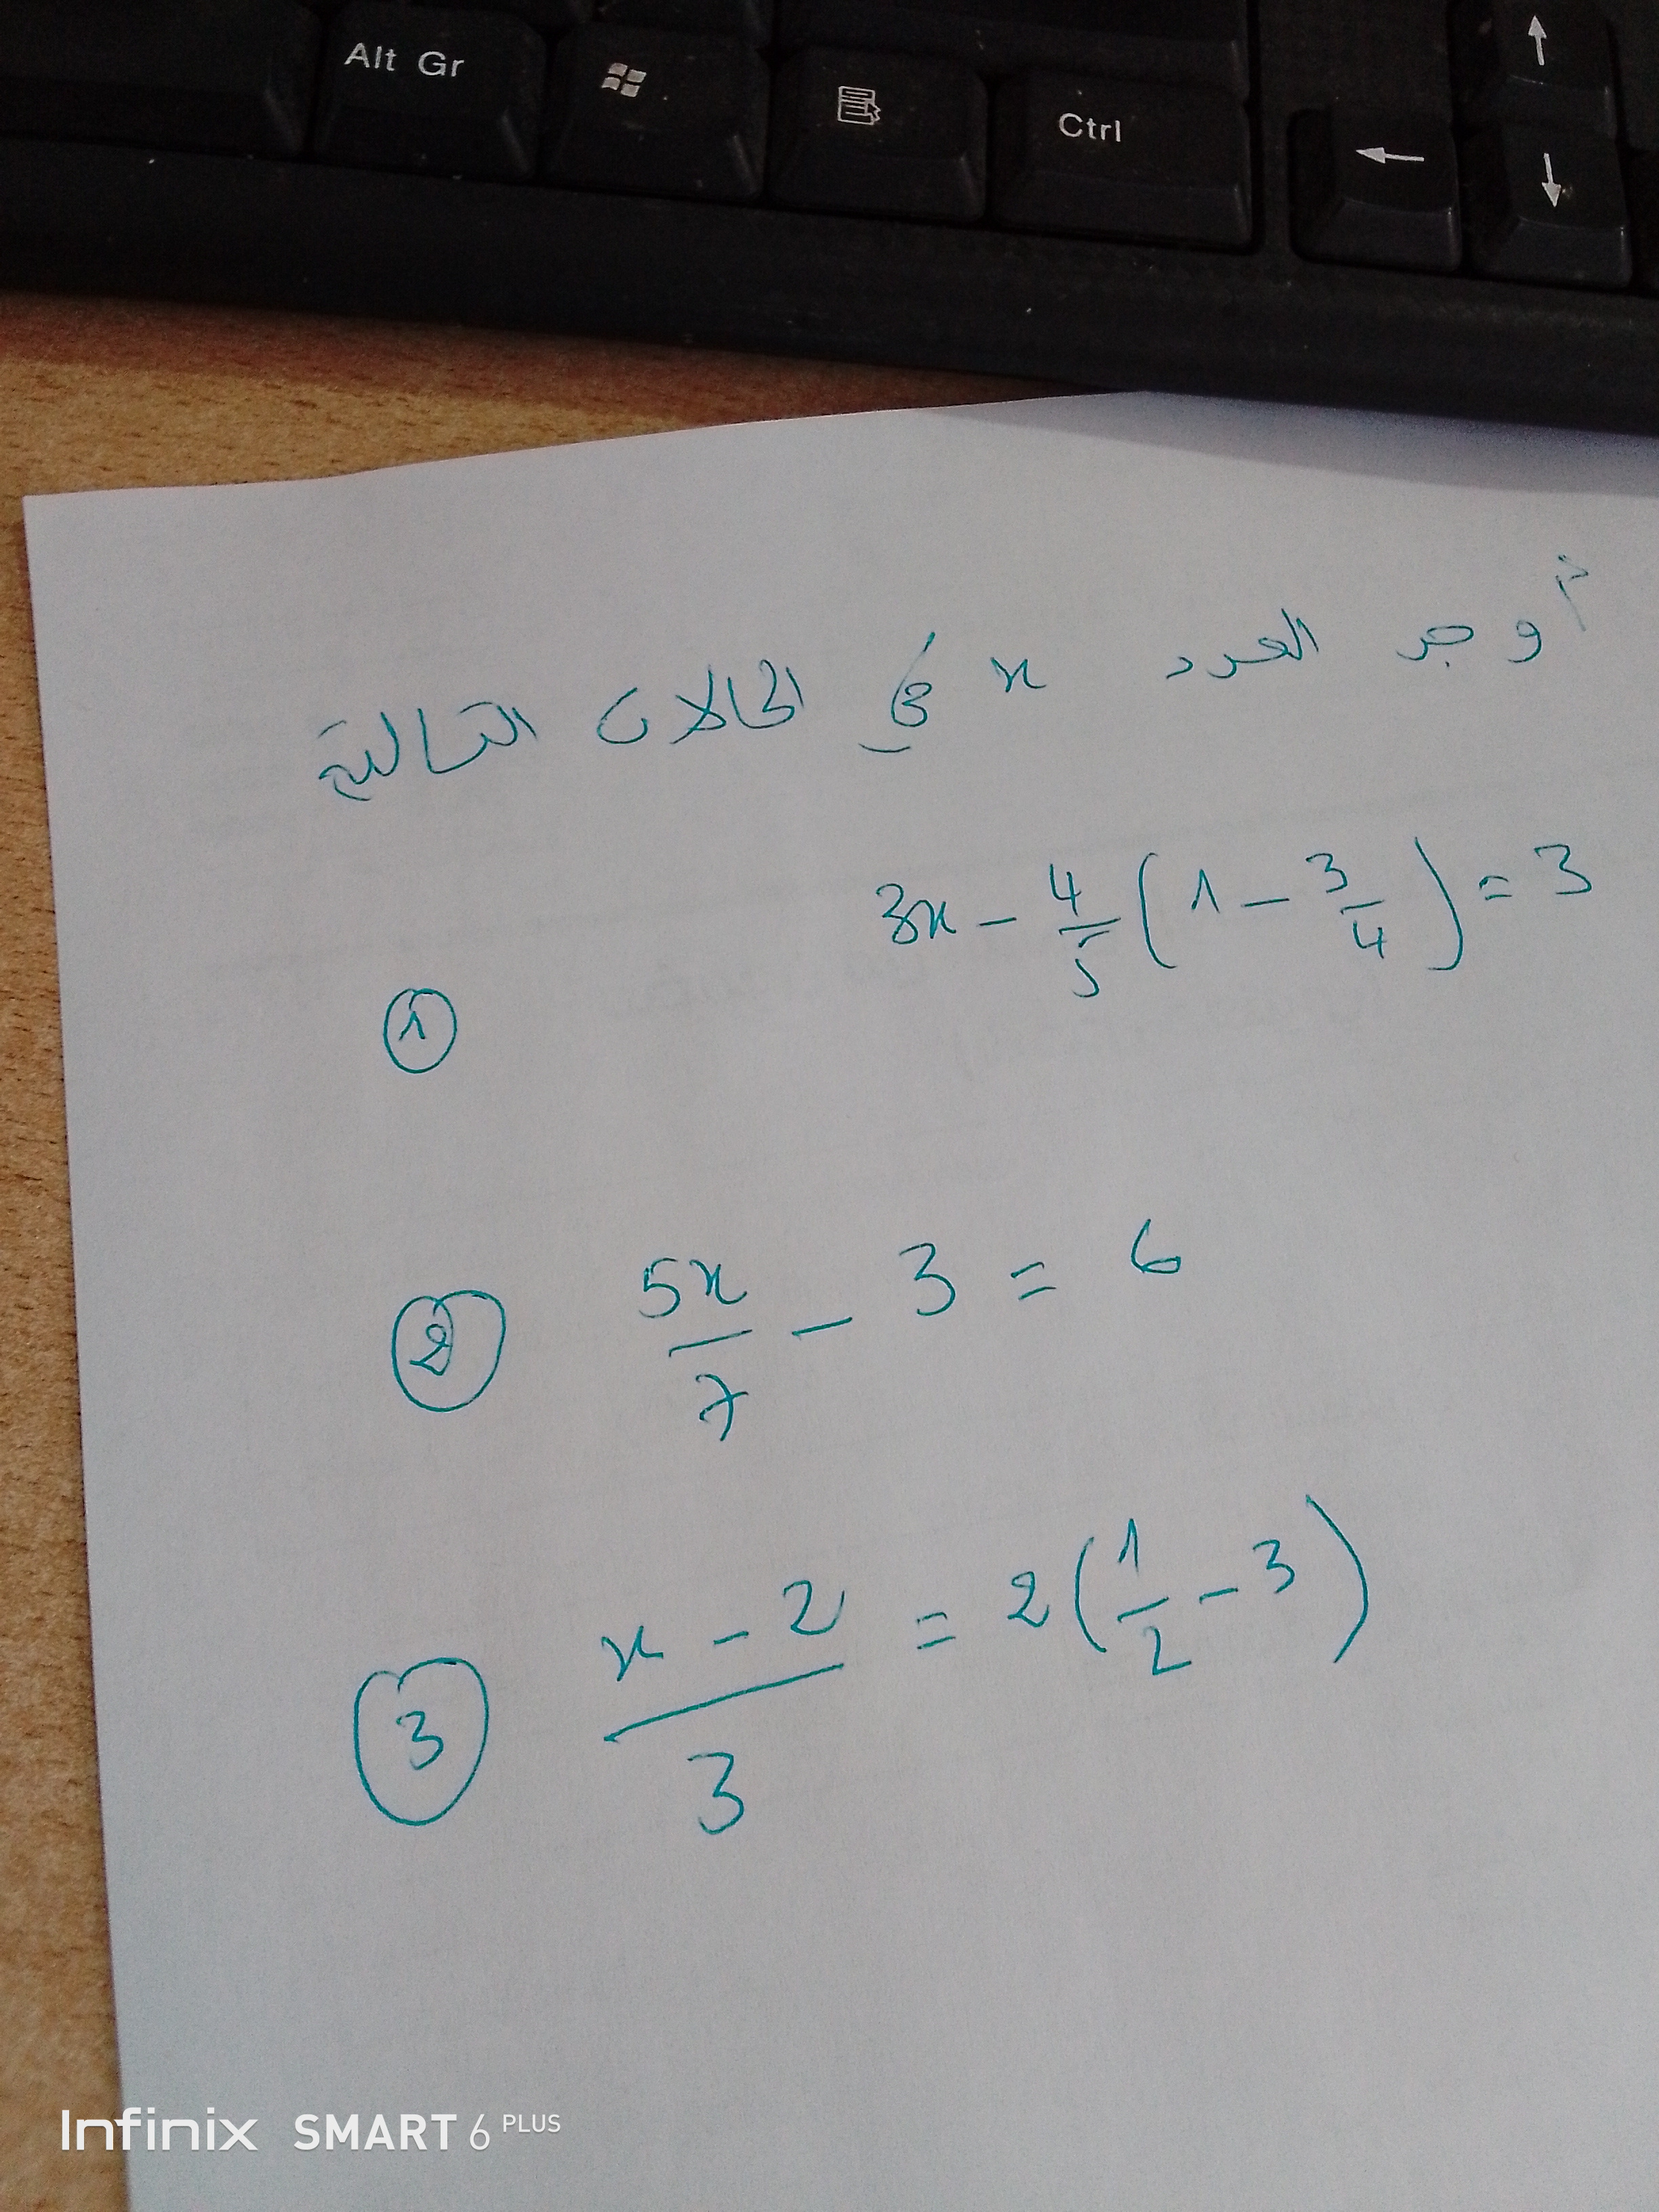 Alt Gr
Ctrl
أوجد العدد x في الحالات التالية
3x - 4/5 (1 - 3/4) = 3
①
② 5x/7 - 3 = 6
③ x - 2/3 = 2(1/2 - 3)
Infinix SMART 6 PLUS